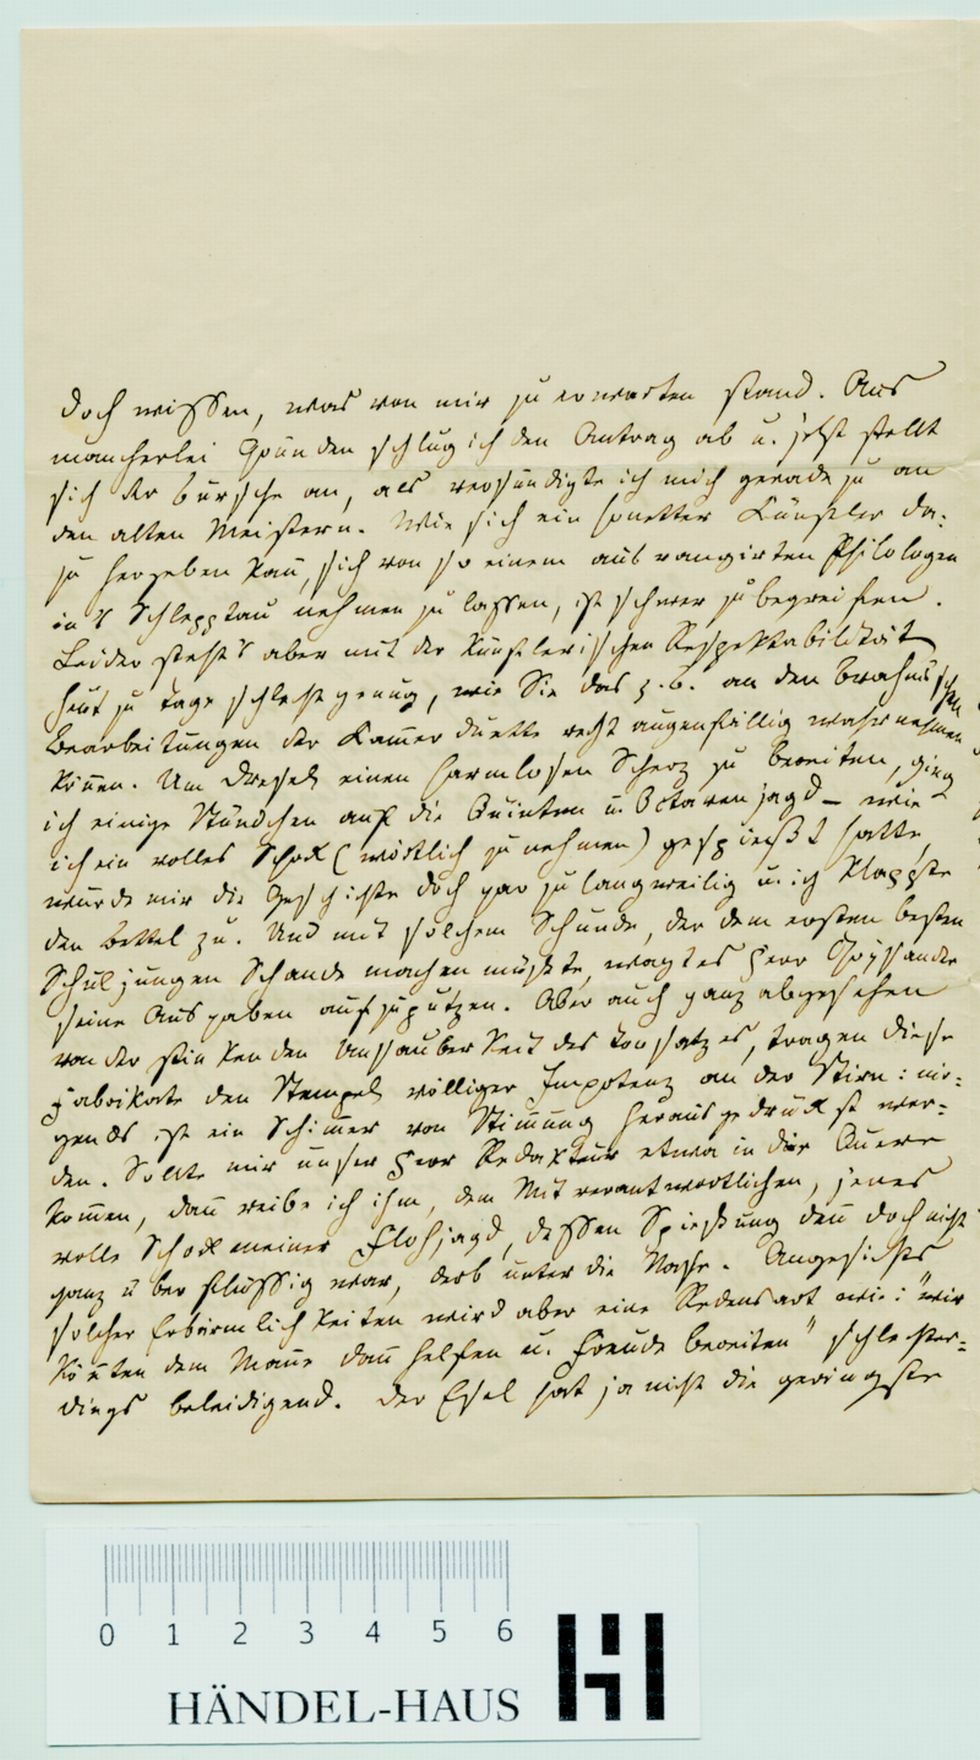 doch wissen, was von mir zu erwarten stand. Aus
mancherlei Gründen schlug ich den Antrag ab u. jetzt stellt
sich der Bursche an, als versündigte ich mich geradezu an
den alten Meistern. Wie sich ein honetter Künstler da-
zu hergeben kañ, sich von so einem ausrangirten Philologen
in's Schlepptau nehmen zu lassen, ist schwer zu begreifen.
Leider steht's aber mit der künstlerischen Respektabilität
heut zu Tage schlecht genug, wie Sie das z. B. an den Brahms'schen
Bearbeitungen der Kam̄erduette recht augenfällig wahrnehmen
köñen. Um Dresel einen harmlosen Scherz zu bereiten, ging
ich einige Stündchen auf die Quinten u. Octavenjagd – wie
ich ein volles Schock (wörtlich zu nehmen) gespießt hatte,
wurde mir die Geschichte doch gar zu langweilig u. ich klappte
den Bettel zu. Und mit solchem Schunde, der dem ersten besten
Schuljungen Schande machen müßte, wagt es Herr Chrysander
seine Ausgaben aufzuputzen. Aber auch ganz abgesehen
von der stinkenden Unsauberkeit des Tonsatzes, tragen diese
Fabrikate den Stempel völliger Impotenz an der Stirn: nir-
gends ist ein Schim̄er von Stim̄ung herausgedrückst wor-
den. Sollte mir unser Herr Redakteur etwa in die Quere
kom̄en, dañ reibe ich ihm, dem Mitverantwortlichen, jenes
volle Schock meiner Flohjagd, dessen Spießung deñ doch nicht
ganz überflüssig war, derb unter die Nase. Angesichts
solcher Erbärmlichkeiten wird aber eine Redensart wie: "wir
köñten dem Mañe dañ helfen u. Freude bereiten" schlechter-
dings beleidigend. Der Esel hat ja nicht die geringste
0 1 2 3 4 5 6
HÄNDEL-HAUS